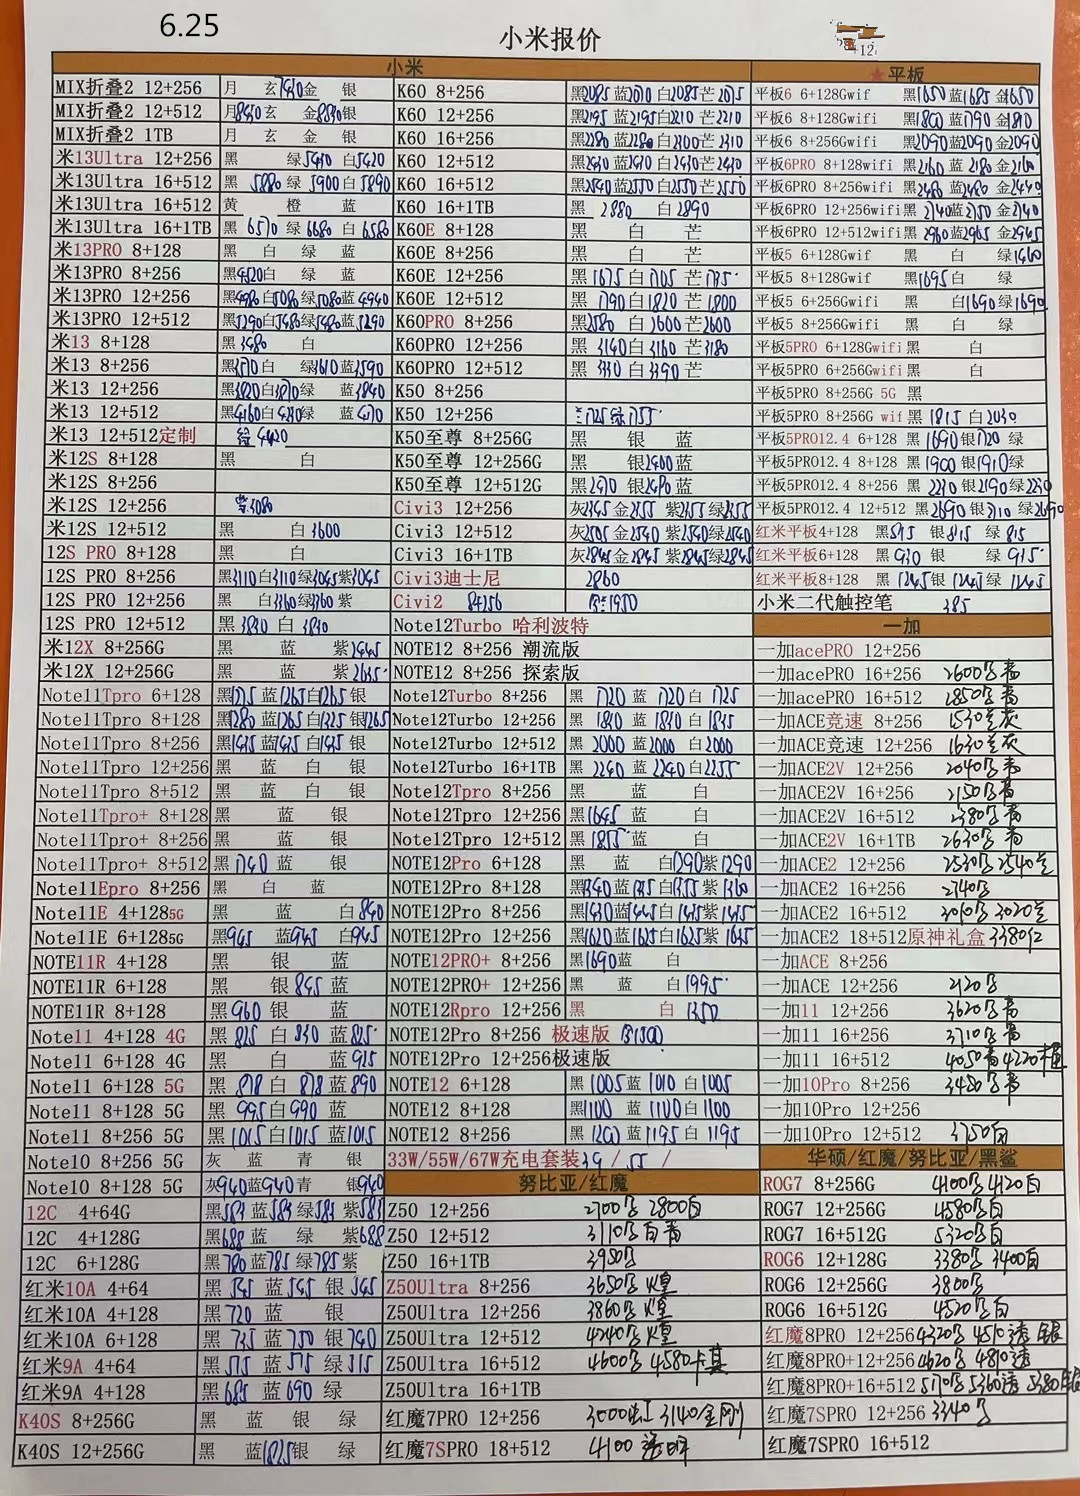 6.25
小米报价
小米
MIX折叠2 12+256 月 玄 金 银
MIX折叠2 12+512 月 玄 金 银
MIX折叠2 1TB 月 玄 金 银
米13Ultra 12+256 黑 绿5430 白5420
米13Ultra 16+512 黑 5880 绿 5900 白 5890
米13Ultra 16+512 黄 橙 蓝
米13Ultra 16+1TB 黑 6570 绿 6680 白 6580
米13PRO 8+128 黑 白 绿 蓝
米13PRO 8+256 黑4520 白 绿 蓝
米13PRO 12+256 黑4980 白5080 绿5080 蓝4940
米13PRO 12+512 黑5290 白5480 绿5480 蓝5290
米13 8+128 黑3480 白
米13 8+256 黑 白 绿3610 蓝3590
米13 12+256 黑3820 白3870 绿 蓝3840
米13 12+512 黑4160 白 绿 蓝
米13 12+512定制 4420
米12S 8+128 黑 白
米12S 8+256
米12S 12+256 3080
米12S 12+512 黑 白3600
12S PRO 8+128 黑 白
12S PRO 8+256 黑3110 白3110 绿3045 紫3045
12S PRO 12+256 黑 白3360 绿3360 紫
12S PRO 12+512 黑 3830 白 3830
米12X 8+256G 黑 蓝 紫2445
米12X 12+256G 黑 蓝 紫2635
Note11Tpro 6+128 黑 蓝1265 白1265 银
Note11Tpro 8+128 黑1280 蓝1265 白 银1265
Note11Tpro 8+256 黑1435 蓝1435 白1435 银
Note11Tpro 12+256 黑 蓝 白 银
Note11Tpro 8+512 黑 蓝 白 银
Note11Tpro+ 8+128 黑 蓝 银
Note11Tpro+ 8+256 黑 蓝 银
Note11Tpro+ 8+512 黑 1740 蓝 银
Note11Epro 8+256 黑 白 蓝
Note11E 4+128 5G 黑 蓝 白 840
Note11E 6+128 5G 黑945 蓝945 白945
NOTE11R 4+128 黑 银 蓝
NOTE11R 6+128 黑 银 845 蓝
NOTE11R 8+128 黑960 银 蓝
Note11 4+128 4G 黑 825 白 830 蓝825
Note11 6+128 4G 黑 白 蓝925
Note11 6+128 5G 黑 878 白 878 蓝890
Note11 8+128 5G 黑 995 白990 蓝
Note11 8+256 5G 黑 1015 白1015 蓝1015
Note10 8+256 5G 灰 蓝 青 银
Note10 8+128 5G 灰940 蓝940 青 银940
12C 4+64G 黑584 蓝 584 绿 584 紫584
12C 4+128G 黑688 蓝 绿 紫688
12C 6+128G 黑780 蓝785 绿785 紫
红米10A 4+64 黑 545 蓝 545 银 545
红米10A 4+128 黑 720 蓝 银
红米10A 6+128 黑 735 蓝 750 银740
红米9A 4+64 黑 515 蓝 515 绿 515
红米9A 4+128 黑 685 蓝 690 绿
K40S 8+256G 黑 蓝 银 绿
K40S 12+256G 黑 蓝1825 银 绿
K60 8+256 黑2085 蓝2070 白2085 芒2075
K60 12+256 黑2195 蓝2195 白2210 芒2210
K60 16+256 黑2280 蓝2280 白2300 芒2310
K60 12+512 黑2430 蓝2430 白2430 芒2430
K60 16+512 黑2540 蓝2550 白2550 芒2550
K60 16+1TB 黑 2880 白 2890
K60E 8+128 黑 白 芒
K60E 8+256 黑 白 芒
K60E 12+256 黑 1675 白 1705 芒 1735
K60E 12+512 黑 1790 白1820 芒 1800
K60PRO 8+256 黑2580 白 2600 芒2600
K60PRO 12+256 黑 3140 白3160 芒3180
K60PRO 12+512 黑 3330 白3390 芒
K50 8+256
K50 12+256 1725 绿1755
K50至尊 8+256G 黑 银 蓝
K50至尊 12+256G 黑 银2400 蓝
K50至尊 12+512G 黑 2470 银 2480 蓝
Civi3 12+256 灰2345 金2355 紫2355 绿2355
Civi3 12+512 灰2505 金2540 紫2540 绿2540
Civi3 16+1TB 灰2845 金2845 紫2845 绿2845
Civi3迪士尼 2860
Civi2 8+256 1950
Note12Turbo 哈利波特
NOTE12 8+256 潮流版
NOTE12 8+256 探索版
Note12Turbo 8+256 黑 1720 蓝 1720 白 1725
Note12Turbo 12+256 黑 1810 蓝 1810 白 1835
Note12Turbo 12+512 黑 2000 蓝2000 白2000
Note12Turbo 16+1TB 黑 2240 蓝 2240 白2255
Note12Tpro 8+256 黑 蓝 白
Note12Tpro 12+256 黑1645 蓝 白
Note12Tpro 12+512 黑 1875 蓝 白
NOTE12Pro 6+128 黑 蓝 白1290 紫1290
NOTE12Pro 8+128 黑1340 蓝1345 白1355 紫1360
NOTE12Pro 8+256 黑1430 蓝1445 白1455 紫1455
NOTE12Pro 12+256 黑1620 蓝1625 白1625 紫 1645
NOTE12PRO+ 8+256 黑1690 蓝 白
NOTE12PRO+ 12+256 黑 蓝 白1995
NOTE12Rpro 12+256 黑 白 1350
NOTE12Pro 8+256 极速版 1300
NOTE12Pro 12+256极速版
NOTE12 6+128 黑 1005 蓝 1010 白1005
NOTE12 8+128 黑1100 蓝 1100 白1100
NOTE12 8+256 黑 1200 蓝1195 白 1195
33W/55W/67W充电套装39 / 55 /
努比亚/红魔
Z50 12+256 2700 2800白
Z50 12+512 3110 白青
Z50 16+1TB 3950
Z50Ultra 8+256 3650 煌
Z50Ultra 12+256 3860 煌
Z50Ultra 12+512 4240 煌
Z50Ultra 16+512 4600 4580卡其
Z50Ultra 16+1TB
红魔7PRO 12+256 3000 3140金刚
红魔7SPRO 18+512 4100 透明
★平板
平板6 6+128Gwif 黑1650 蓝1685 金1650
平板6 8+128Gwif 黑1800 蓝1790 金1810
平板6 8+256Gwif 黑2090 蓝2090 金2090
平板6PRO 8+128wifi 黑2160 蓝 2180 金2160
平板6PRO 8+256wifi 黑2480 蓝2480 金2440
平板6PRO 12+256wifi 黑 2740 蓝2750 金2740
平板6PRO 12+512wifi 黑 2960 蓝2965 金2945
平板5 6+128Gwif 黑 白 绿1460
平板5 8+128Gwif 黑1695 白 绿
平板5 6+256Gwifi 黑 白1690 绿1690
平板5 8+256Gwifi 黑 白 绿
平板5PRO 6+128Gwifi 黑 白
平板5PRO 6+256Gwifi 黑 白
平板5PRO 8+256G 5G 黑
平板5PRO 8+256G wif 黑 1815 白2030
平板5PRO12.4 6+128 黑 1690 银1720 绿
平板5PRO12.4 8+128 黑 1900 银1910 绿
平板5PRO12.4 8+256 黑 2230 银2190 绿2230
平板5PRO12.4 12+512 黑2690 银2710 绿2690
红米平板4+128 黑815 银 815 绿 815
红米平板6+128 黑 930 银 绿 915
红米平板8+128 黑 1245 银 1245 绿 1245
小米二代触控笔 385
一加
一加acePRO 12+256
一加acePRO 16+256 2600 青
一加acePRO 16+512 2850 青
一加ACE竞速 8+256 1530 灰
一加ACE竞速 12+256 1630 灰
一加ACE2V 12+256 2040 青
一加ACE2V 16+256 2150 青
一加ACE2V 16+512 2380 青
一加ACE2V 16+1TB 2630 青
一加ACE2 12+256 2530 2540
一加ACE2 16+256 2740
一加ACE2 16+512 3010 3020
一加ACE2 18+512原神礼盒 3380红
一加ACE 8+256
一加ACE 12+256 2120
一加11 12+256 3620 青
一加11 16+256 3710 青
一加11 16+512 4050青 4220
一加10Pro 8+256 3420 青
一加10Pro 12+256
一加10Pro 12+512 3750白
华硕/红魔/努比亚/黑鲨
ROG7 8+256G 4100 4120白
ROG7 12+256G 4580白
ROG7 16+512G 5320白
ROG6 12+128G 3380 3400白
ROG6 12+256G 3800
ROG6 16+512G 4520白
红魔8PRO 12+256 4320 4510透 银
红魔8PRO+12+256 4620 4810透
红魔8PRO+16+512 5170 5360透 5380银
红魔7SPRO 12+256 3340
红魔7SPRO 16+512